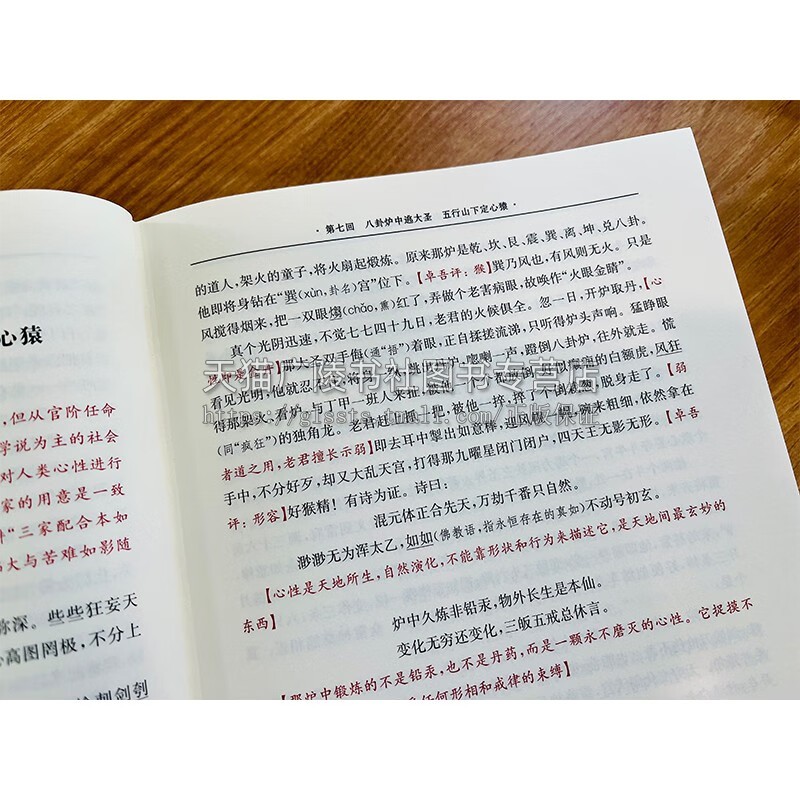 心猿
，但从官阶任命
学说为主的社会
对人类心性进行
家的用意是一致
”三家配合本如
大与苦难如影随
弥深。些些狂妄天
高图罔极，不分上
剑刳
·第七回 八卦炉中逃大圣 五行山下定心猿·
的道人，架火的童子，将火扇起煅炼。原来那炉是乾、坎、艮、震、巽、离、坤、兑八卦。
他即将身钻在“巽(xùn,卦名)宫”位下。【卓吾评：猴】巽乃风也，有风则无火。只是
风搅得烟来，把一双眼熌(chǎo,熏)红了，弄做个老害病眼，故唤作“火眼金睛”。
真个光阴迅速，不觉七七四十九日，老君的火候俱全。忽一日，开炉取丹，【心
那大圣双手侮(通“捂”)着眼，正自揉搓流涕，只听得炉头声响。猛睁眼
看见光明，他就忍不住，将身一，跳出丹炉，唿喇一声，蹬倒八卦炉，往外就走。慌
得那架火、看炉，与丁甲一班人来扯，被他一个个都放倒，好似癫痫的白额虎，风狂
(同“疯狂”)的独角龙。老君赶上抓一把，被他一捽，捽了个倒，脱身走了。【弱
者道之用，老君擅长示弱】即去耳中掣出如意棒，迎风幌一幌，碗来粗细，依然拿在
手中，不分好歹，却又大乱天宫，打得那九曜星闭门闭户，四天王无影无形。【卓吾
评：形容】好猴精！有诗为证。诗曰：
混元体正合先天，万劫千番只自然。
渺渺无为浑太乙，如如(佛教语，指永恒存在的真如)不动号初玄。
【心性是天地所生，自然演化，不能靠形状和行为来描述它，是天地间最玄妙的
东西】
炉中久炼非铅汞，物外长生是本仙。
变化无穷还变化，三皈五戒总休言。
【那炉中锻炼的不是铅汞，也不是丹药，而是一颗永不磨灭的心性。它捉摸不
任何形相和戒律的束缚】
天猫广陵书社图书专营店
https://glssts.tmall.com/正版保证